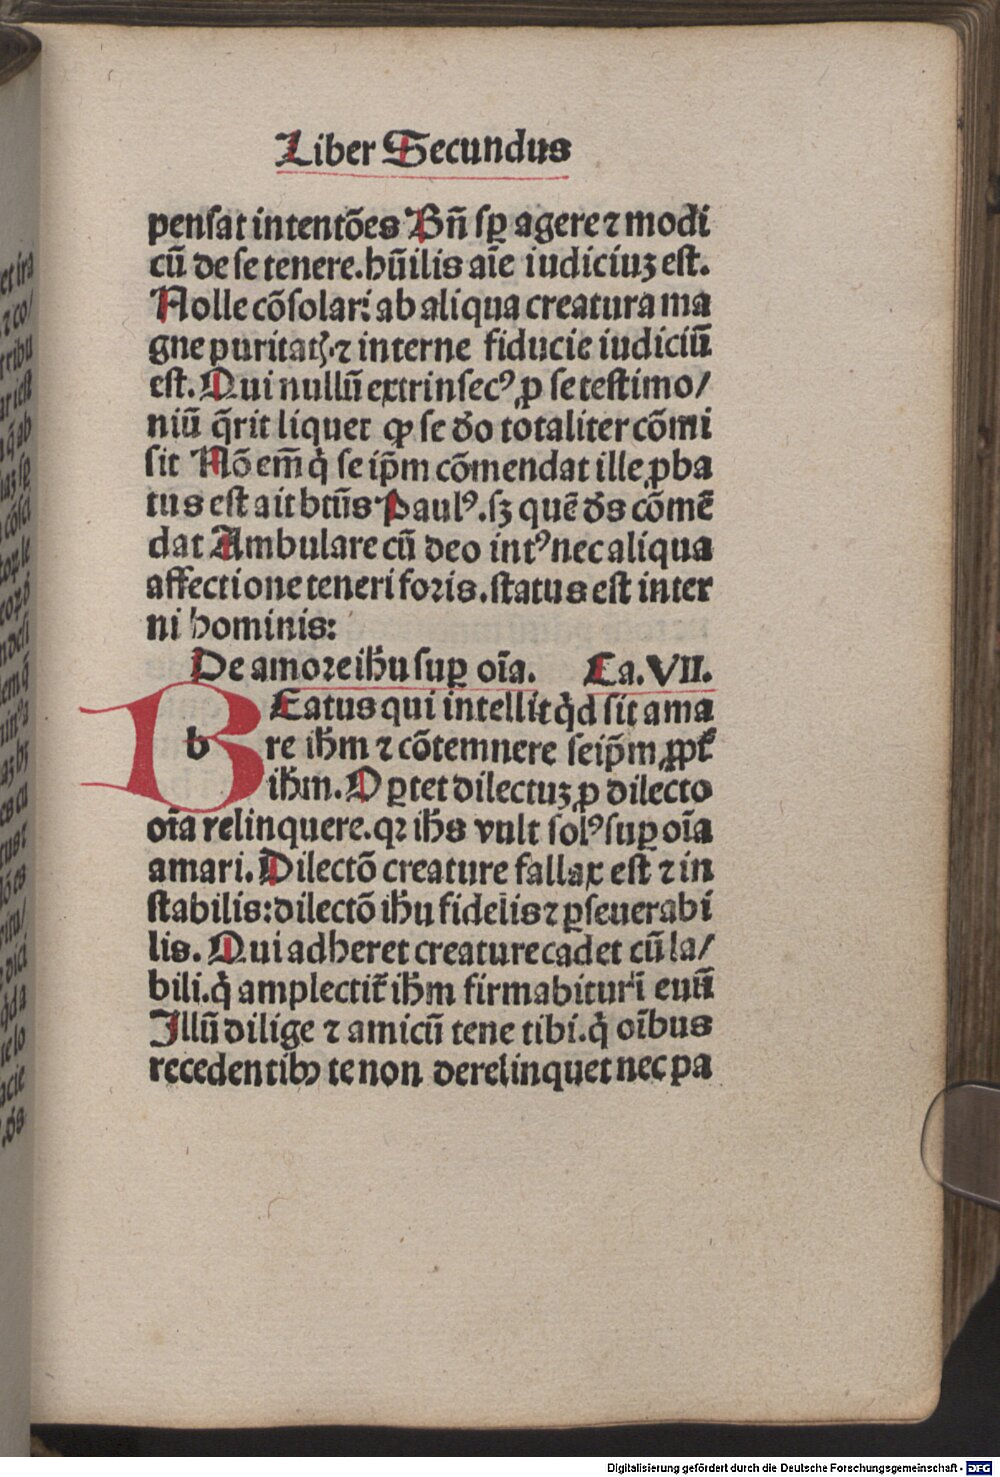 Liber Secundus
penſat intentōes Bn̄ ſꝑ agere ⁊ modi
cū de ſe tenere. hūilis aīe iudiciuꝫ eſt.
Nolle cōſolari ab aliqua creatura ma
gne puritatꝭ ⁊ interne fiducie iudiciū
eſt. Qui nullū extrinſecꝰ ꝓ ſe teſtimo/
niū q̄rit liquet ꝙ ſe dō totaliter cōmi
ſit Nō em̄ qͥ ſe ip̄m cōmendat ille ꝓba
tus eſt ait btūs Paulꝰ. ſꝫ quē ds̄ cōmē
dat Ambulare cū deo intꝰ nec aliqua
affectione teneri foꝛis. ſtatus eſt inter
ni hominis:
De amoꝛe ih̄u ſuꝑ oīa. Ca. VII.
b Eatus qui intellit qͥd ſit ama
re ih̄m ⁊ cōtemnere ſeip̄m ꝓpt̄
ih̄m. Oꝑtet dilectuꝫ ꝓ dilecto
oīa relinquere. qꝛ ih̄s vult ſolꝰ ſuꝑ oīa
amari. Dilectō creature fallax eſt ⁊ in
ſtabilis: dilectō ih̄u fidelis ⁊ ꝑſeuerabi
lis. Qui adheret creature cadet cū la/
bili. qͥ amplectit̄ ih̄m firmabitur ī euū
Illū dilige ⁊ amicū tene tibi. qͥ oībus
recedentibꝫ te non derelinquet nec pa
Digitalisierung gefördert durch die Deutsche Forschungsgemeinschaft - DFG